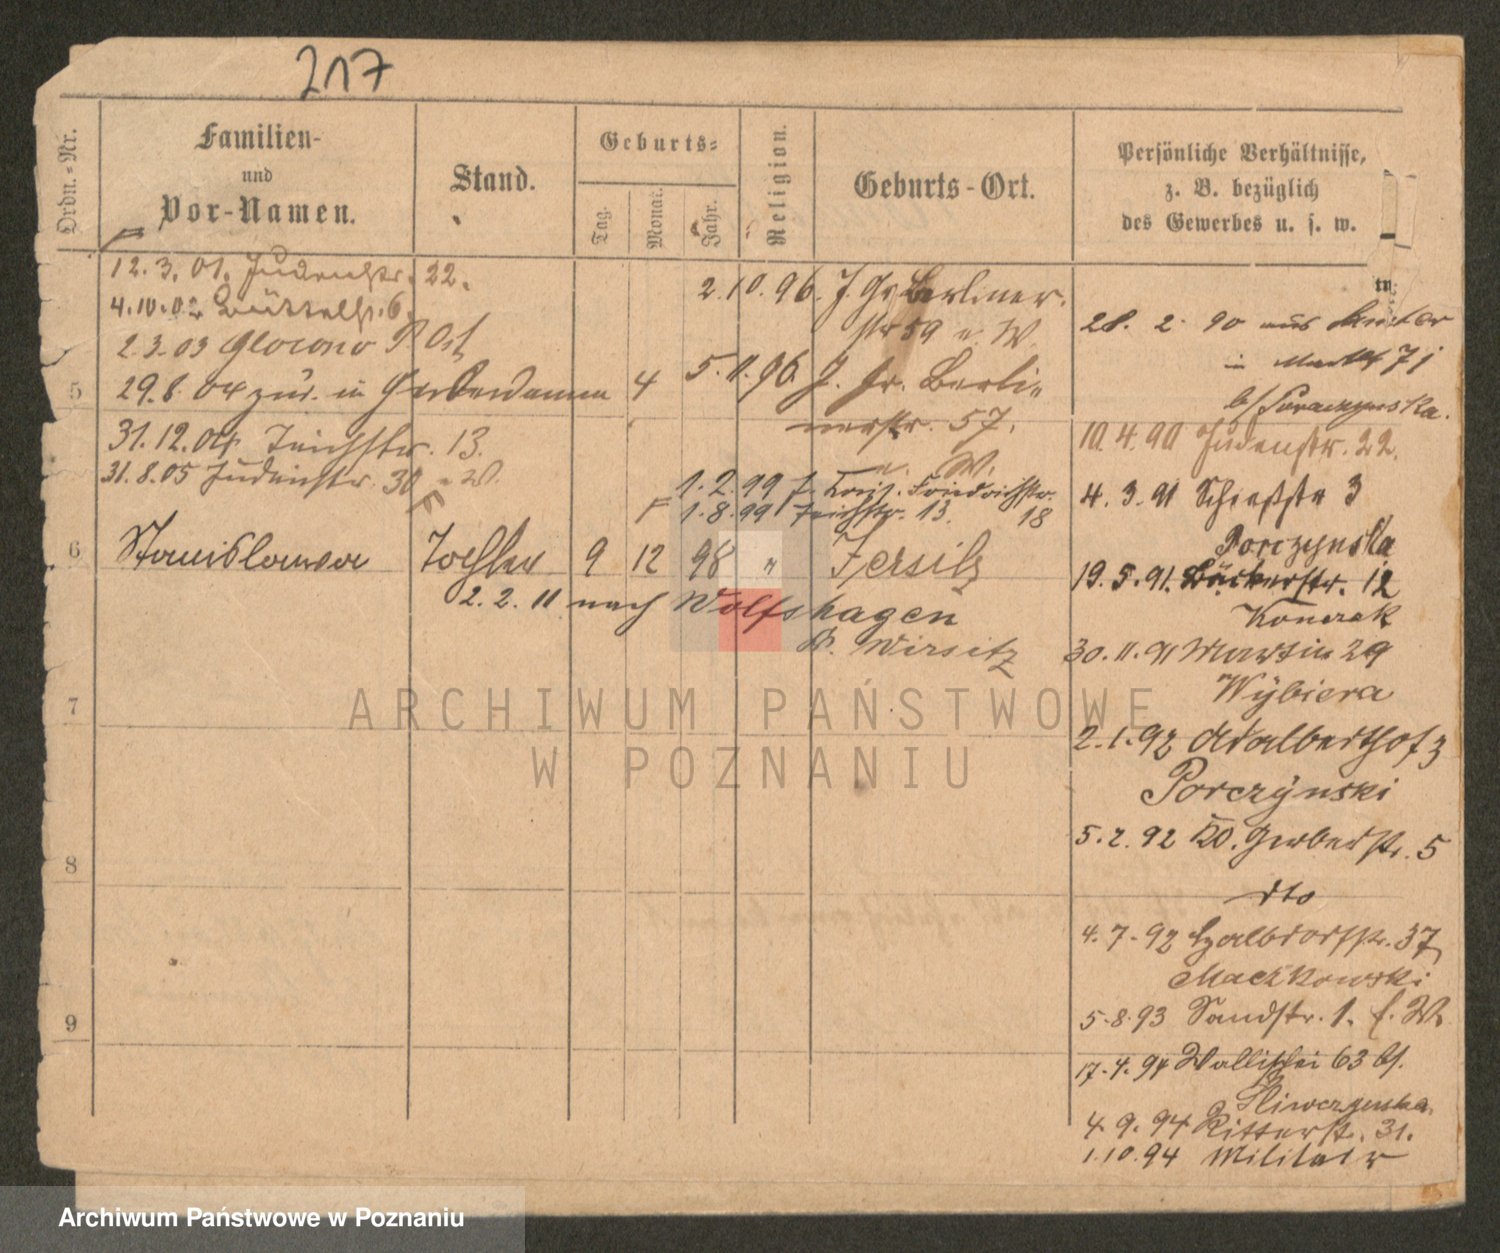 217
Ordn.-Nr.
Familien-
und
Vor-Namen.
Stand.
Geburts-
Tag.
Monat.
Jahr.
Religion.
Geburts-Ort.
Persönliche Verhältnisse,
z. B. bezüglich
des Gewerbes u. s. w.
12.3.01. Judenstr. 22.
4.10.02 Büttelstr. 6.
2.3.03 Glowno P Ost
29.8.04 zur. in Gerberdamm 4
31.12.04 Teichstr. 13.
31.8.05 Judenstr. 30 W.
2.10.96. J. Gr. Berliner-
str 59 v. W.
5.11.96 J. Gr. Berli-
nerstr. 57.
v. W.
1.2.99 f. Friedrichstr.
18
F 1.8.99 Teichstr. 13.
5
6 Stanislawa Tochter 9 12 98 " Jersitz
2.2.11 nach Wolfshagen
Kr. Wirsitz
7
8
9
28. 2. 90 aus
in Markt 71
b/
10.4.90 Judenstr. 22.
4. 3. 91 Schießstr 3
Porczynska
19.5.91. Bäckerstr. 12
Konczak
30.11.91 Martin 29
Wybiera
2.1.92 Adalberthof 3
Porczynski
5.2.92 Kl. Gerberstr. 5
dto
4.7.92 Halbdorfstr. 37
Maczkowski
5.8.93 Sandstr. 1. f. W.
17.4.94 Wallischei 63 bf.
Sliwczynska
4.9.94 Ritterstr. 31.
1.10.94 Militair
ARCHIWUM PAŃSTWOWE
W POZNANIU
Archiwum Państwowe w Poznaniu